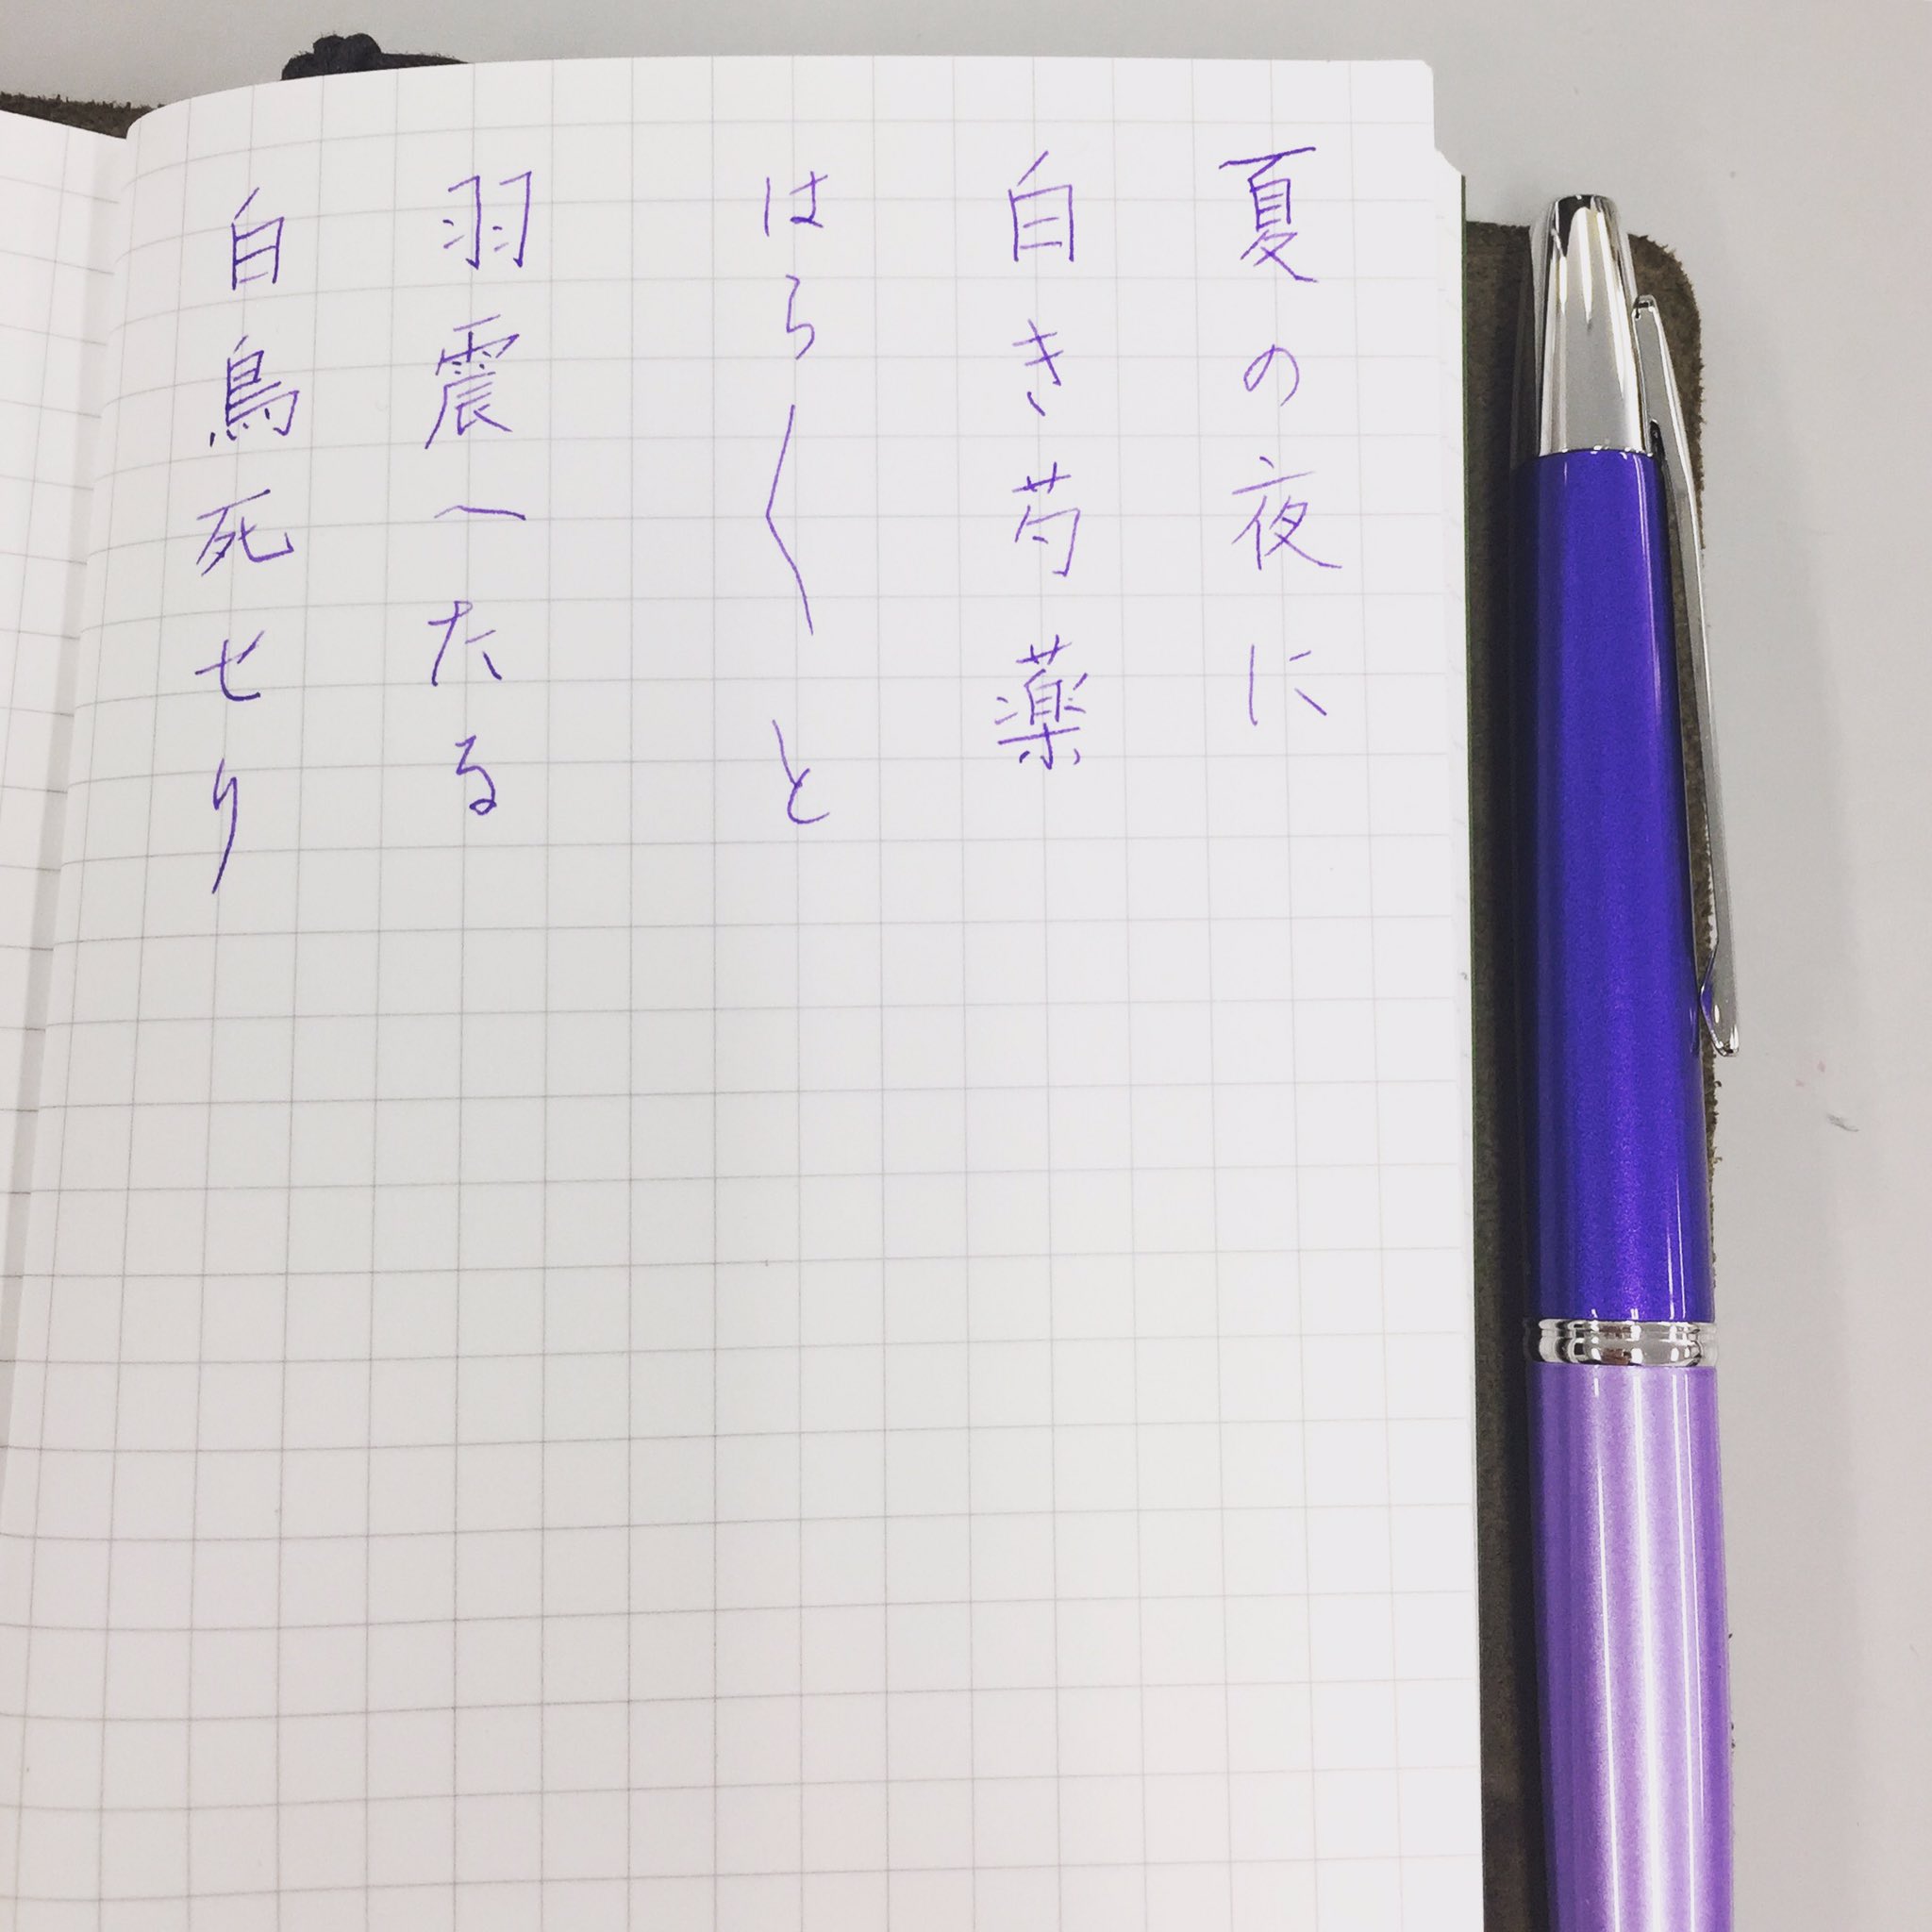 夏の夜に
白き芍薬
はら〱と
羽震へたる
白鳥死せり